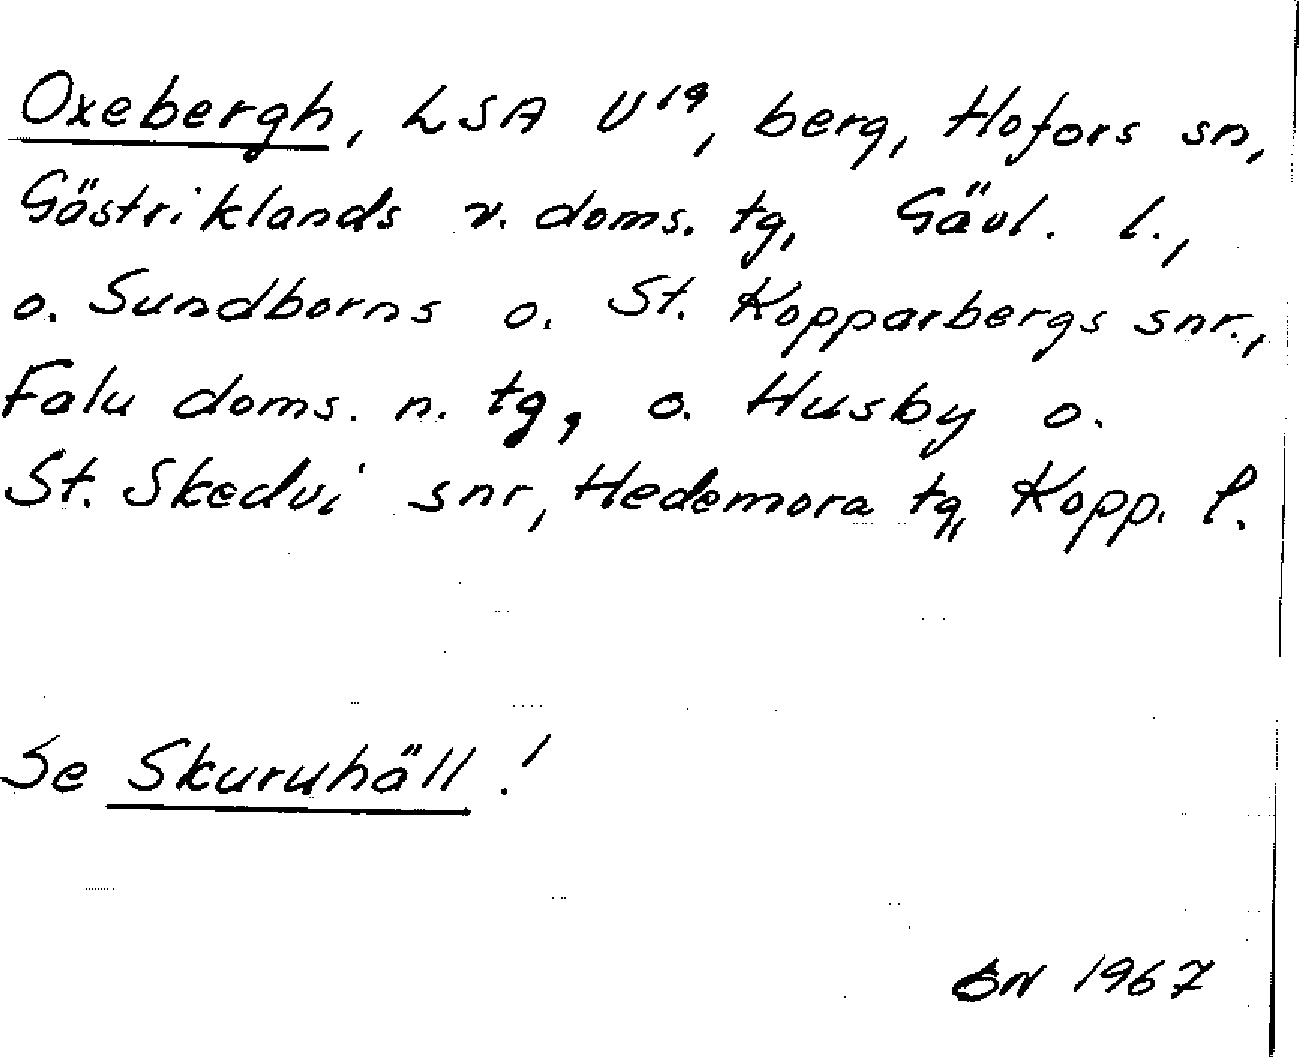 Oxebergh, LSA U19, berg, Hofors sn,
Gästriklands v. doms. tg, Gävl. l.,
o. Sundborns o. St. Kopparbergs snr.,
Falu doms. n. tg, o. Husby o.
St. Skedvi snr, Hedemora tg, Kopp. l.
Se Skuruhäll!
1967